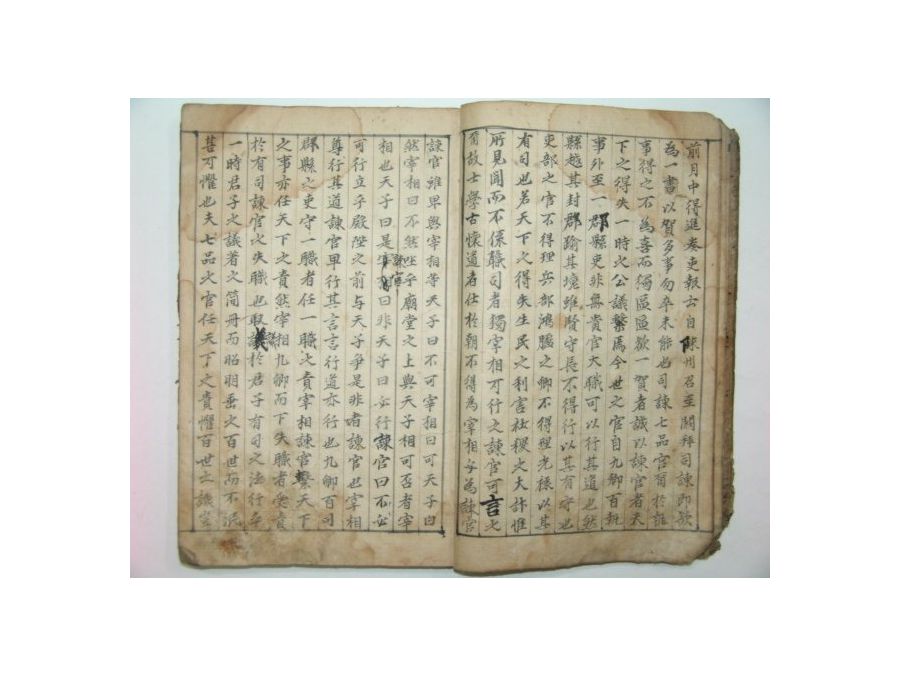 前月中得進奏吏報云自陳州召至闕拜司諫即欲
為一書以賀多事勿卒未能也司諫七品官爾於執
事得之不為喜而獨區區欲一賀者誠以諫官者天
下之得失一時之公議繫焉今世之官自九卿百執
事外至一郡縣吏非無貴官大職可以行其道也然
縣越其封郡踰其境雖賢守長不得行以其有守也
吏部之官不得理兵部鴻臚之卿不得理光祿以其
有司也若天下之得失生民之利害社稷之大計惟
所見聞而不係職司者獨宰相可行之諫官可言之
爾故士學古懷道者仕於朝不得為宰相必為諫官
諫官雖卑與宰相等天子曰不可宰相曰可天子曰
然宰相曰不然坐乎廟堂之上與天子相可否者宰
相也天子曰是諫官曰非天子曰必行諫官曰不必
可行立乎殿陛之前与天子爭是非者諫官也宰相
尊行其道諫官卑行其言言行道亦行也九卿百司
郡縣之吏守一職者任一職之責宰相諫官繫天下
之事亦任天下之責然宰相九卿而下失職者受責
於有司諫官之失職也取譏於君子有司之法行乎
一時君子之議著之简冊而昭明垂之百世而不泯
甚可懼也夫七品之官任天下之責懼百世之譏豈